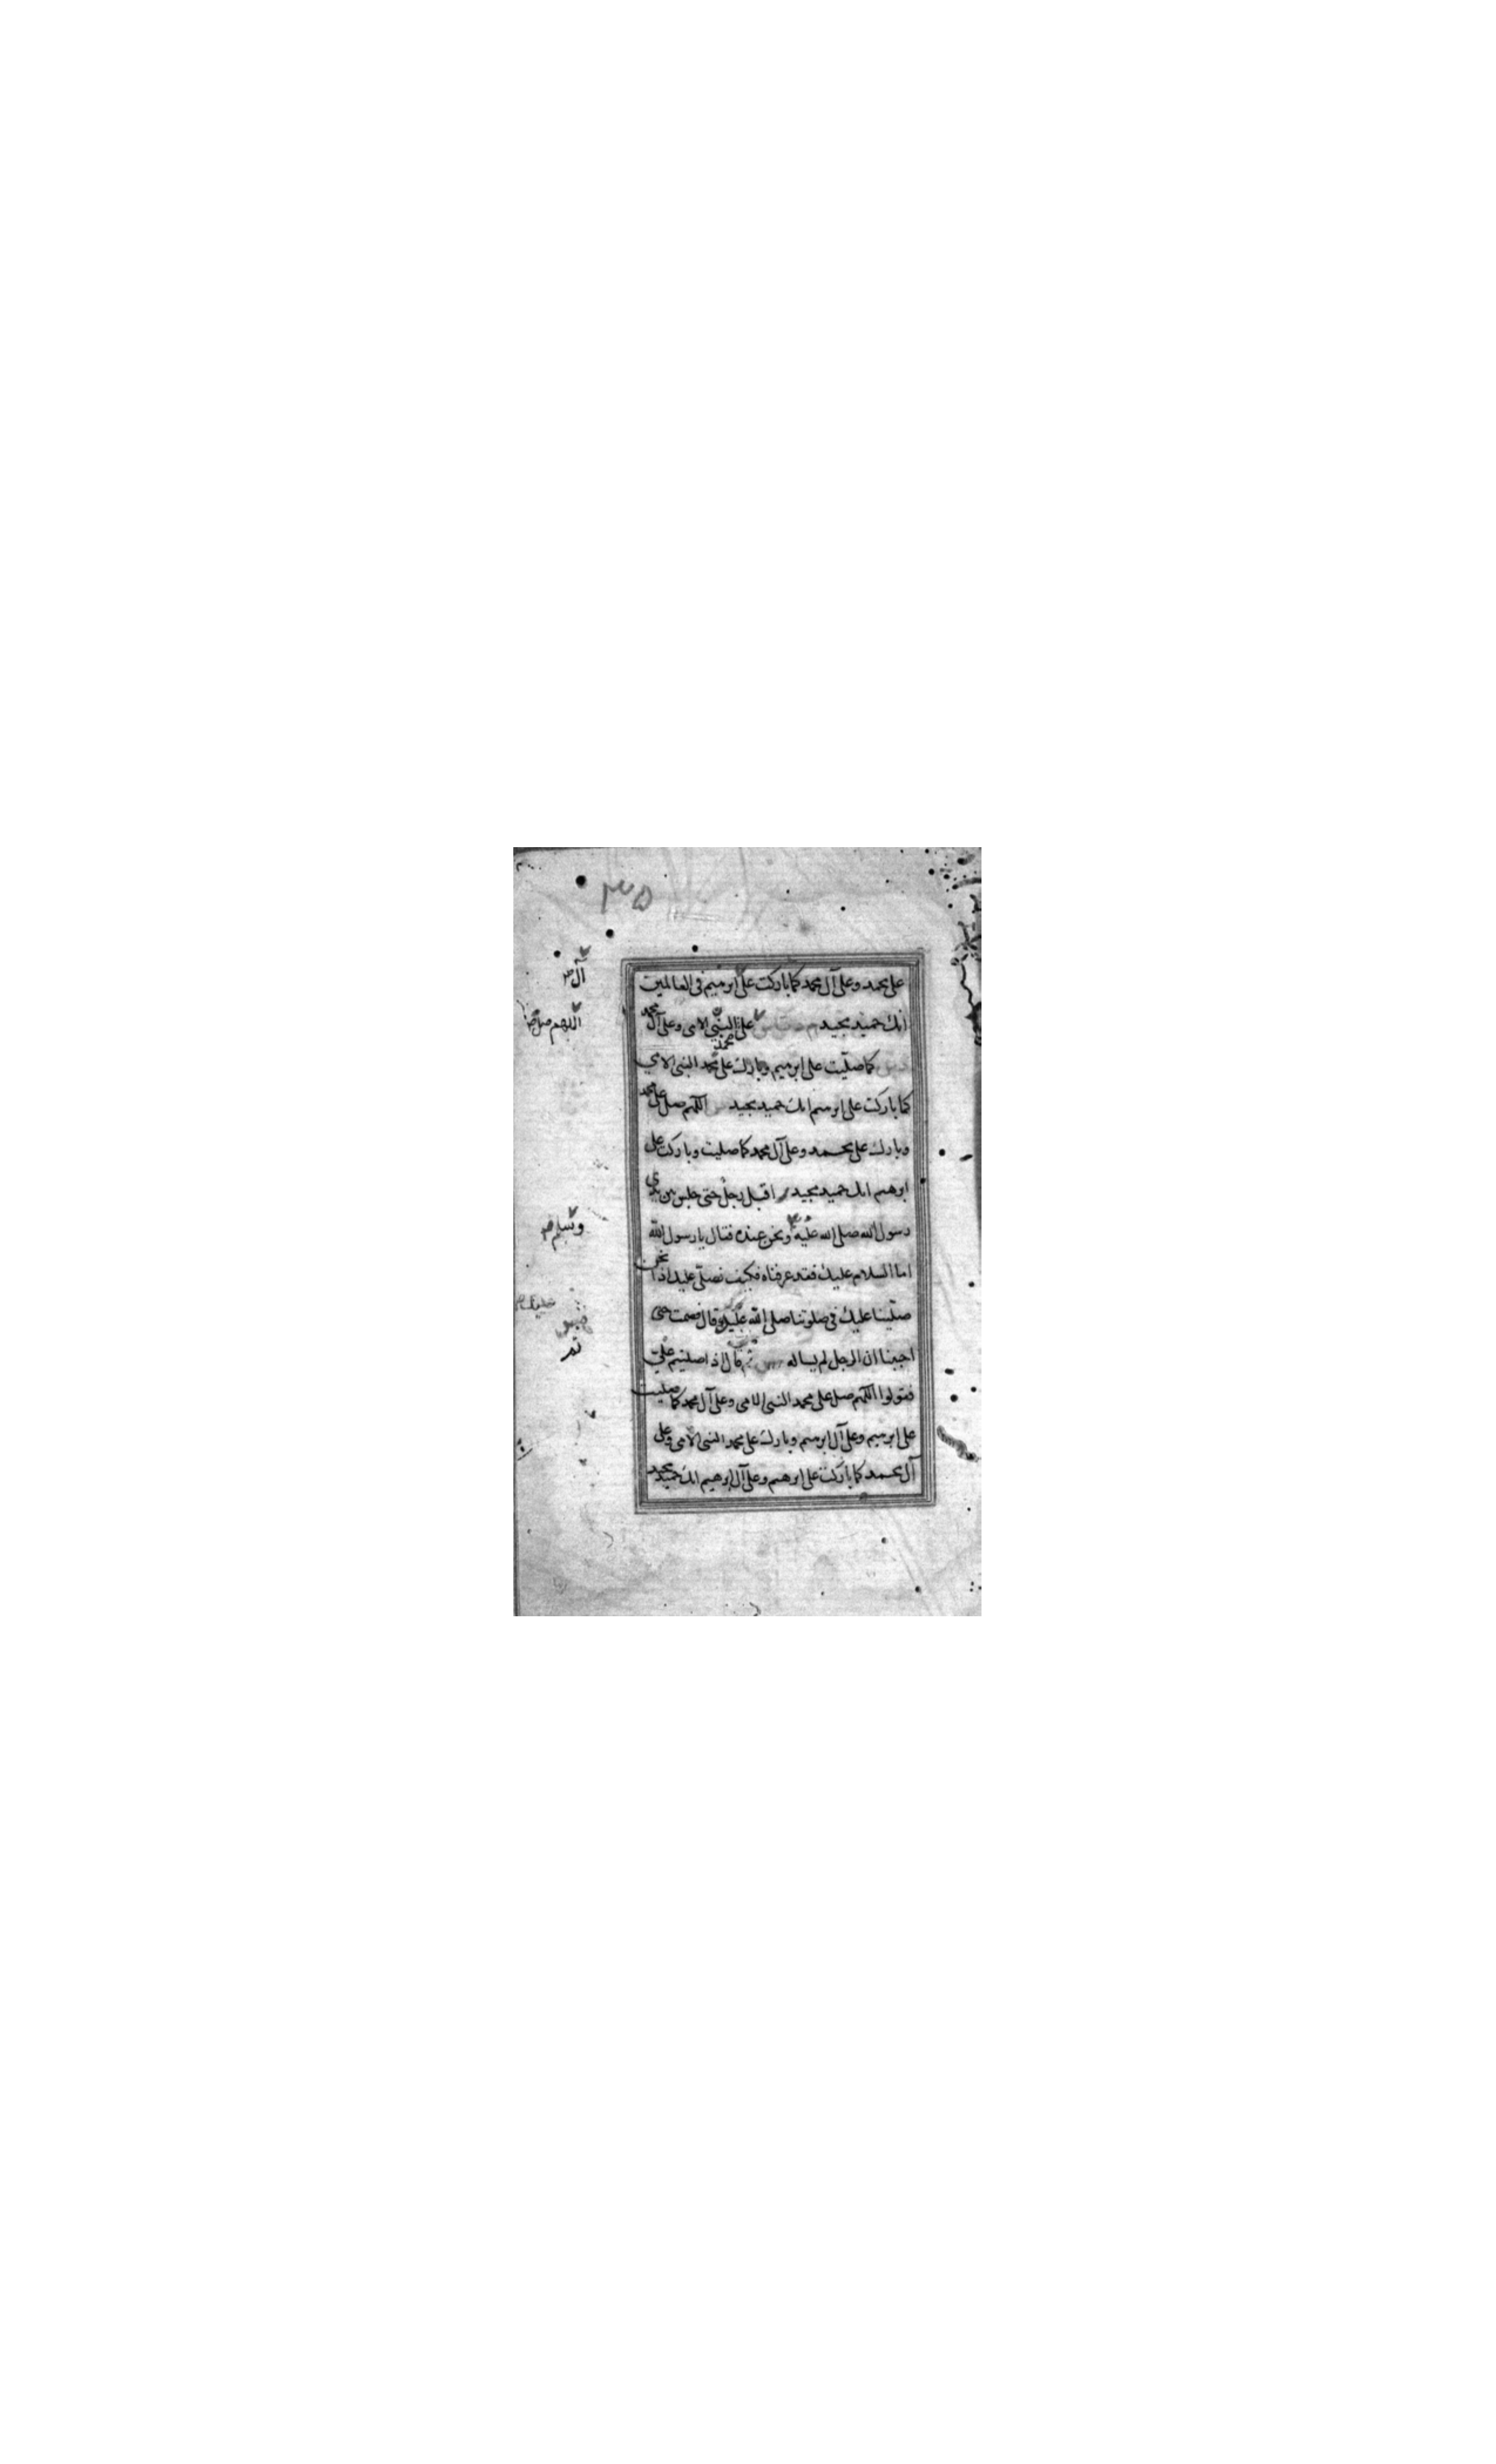 ٣٥
على محمد وعلى آل محمد كما باركت على ابرهيم فى العالمين
آل
انك حميد مجيد على النبى الامى وعلى آل محمد
اللهم صل
محمد
كما صليت على ابرهيم وبارك على محمد النبى الامي
كما باركت على ابرهيم انك حميد مجيد اللهم صل على محمد
وبارك على محمد وعلى آل محمد كما صليت وباركت على
ابرهيم انك حميد مجيد اقبل رجل حتى جلس بين يدي
رسول الله صلى الله عليه ونحن عنده فقال يا رسول الله
وسلم
اما السلام عليك فقد عرفناه فكيف نصلى عليك اذا نحن
صلينا عليك فى صلوتنا صلى الله عليك قال فصمت حتى
احببنا ان الرجل لم يساله ثم قال اذا صليتم على
فقولوا اللهم صل على محمد النبى الامى وعلى آل محمد كما صليت
على ابرهيم وعلى آل ابرهيم وبارك على محمد النبى الامى وعلى
آل محمد كما باركت على ابرهيم وعلى آل ابرهيم انك حميد مجيد